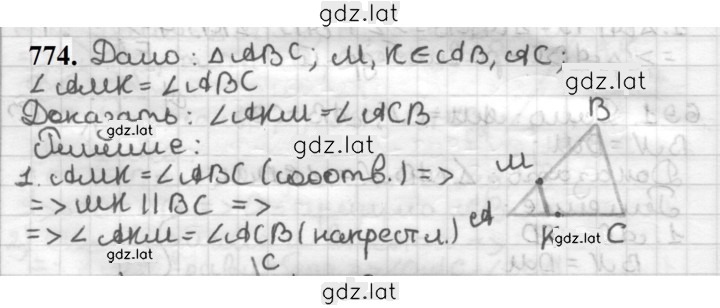 gdz.lat
774. Дано: △ABC; M, K ∈ AB, AC;
gdz.lat
∠AMK = ∠ABC
gdz.lat
Доказать: ∠AKM = ∠ACB
gdz.lat
B
Решение:
gdz.lat
1. AMK = ∠ABC (соотв.) =>
M
=> MK || BC =>
A
=> ∠AKM = ∠ACB (накрест л.)
K
gdz.lat
C
gdz.lat
C
gdz.lat